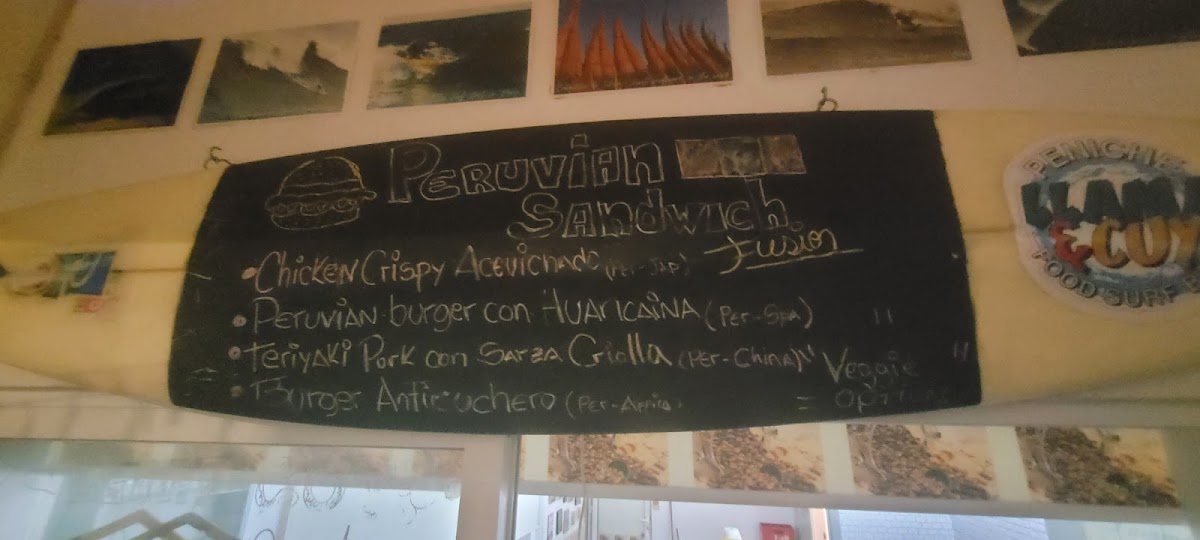 PERUVIAN
SANDWICH.
• CHICKEN CRISPY ACEVICHADO (PER-JAP) Fusion
• PERUVIAN burger con HUARICAINA (PER-SPA) "
• TERIYAKI PORK con SARZA CRIOLLA (PER-CHINA) "
• BURGER Anticuchero (PER-AFRICA)
= Veggie "
OPTIONS
PENICHE
LLAMA
& CUY
FOOD SURF